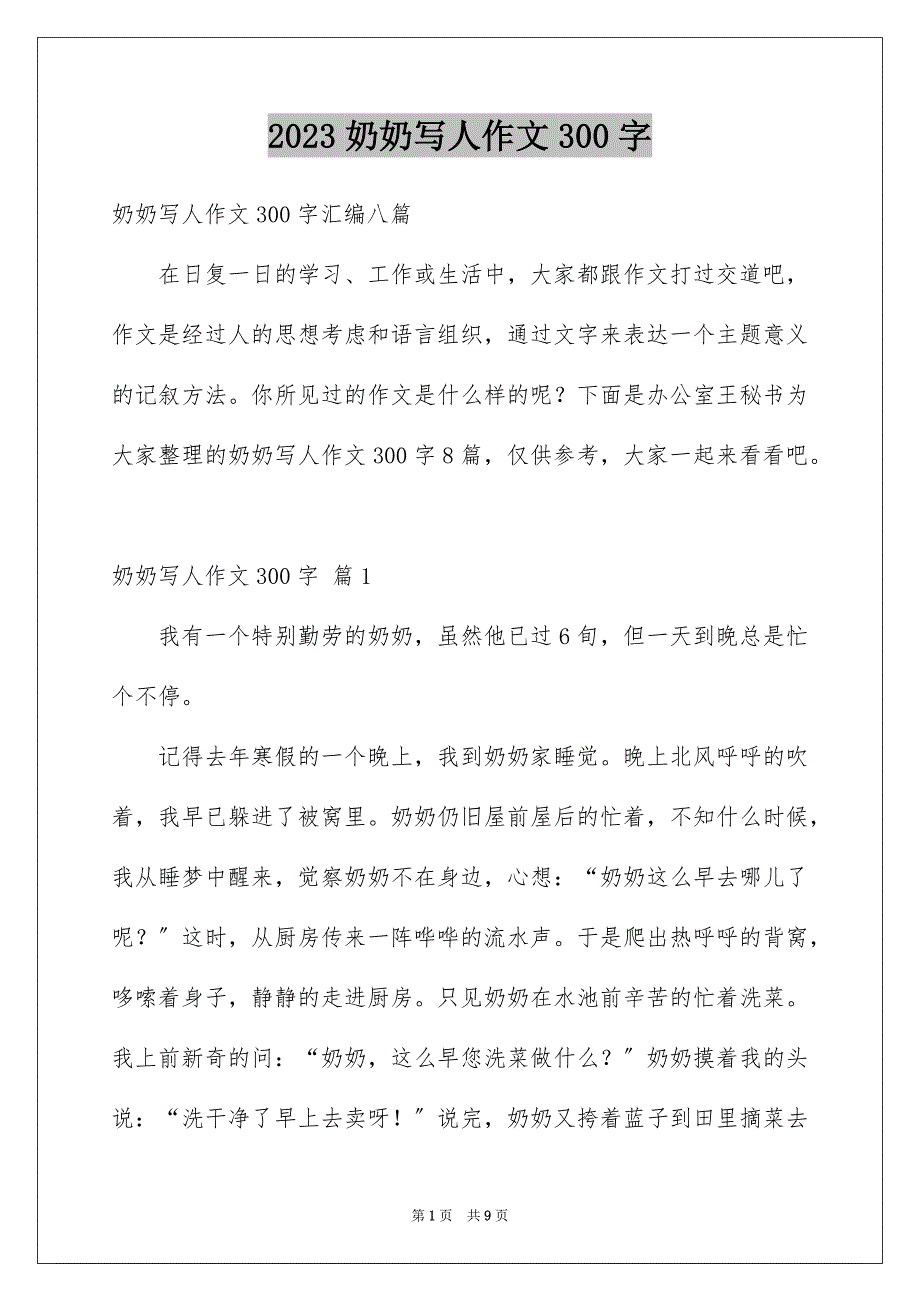 2023奶奶写人作文300字
奶奶写人作文300字汇编八篇
在日复一日的学习、工作或生活中，大家都跟作文打过交道吧，
作文是经过人的思想考虑和语言组织，通过文字来表达一个主题意义
的记叙方法。你所见过的作文是什么样的呢？下面是办公室王秘书为
大家整理的奶奶写人作文300字8篇，仅供参考，大家一起来看看吧。
奶奶写人作文300字 篇1
我有一个特别勤劳的奶奶，虽然他已过6旬，但一天到晚总是忙
个不停。
记得去年寒假的一个晚上，我到奶奶家睡觉。晚上北风呼呼的吹
着，我早已躲进了被窝里。奶奶仍旧屋前屋后的忙着，不知什么时候，
我从睡梦中醒来，觉察奶奶不在身边，心想：“奶奶这么早去哪儿了
呢？〞这时，从厨房传来一阵哗哗的流水声。于是爬出热呼呼的背窝，
哆嗦着身子，静静的走进厨房。只见奶奶在水池前辛苦的忙着洗菜。
我上前新奇的问：“奶奶，这么早您洗菜做什么？〞奶奶摸着我的头
说：“洗干净了早上去卖呀！〞说完，奶奶又挎着蓝子到田里摘菜去
第1页 共9页